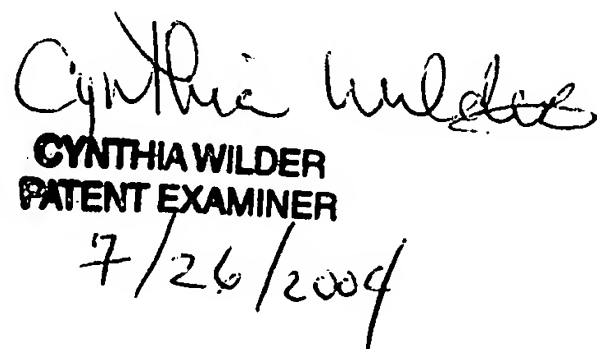 Cynthia Wilder
CYNTHIA WILDER
PATENT EXAMINER
7/26/2004